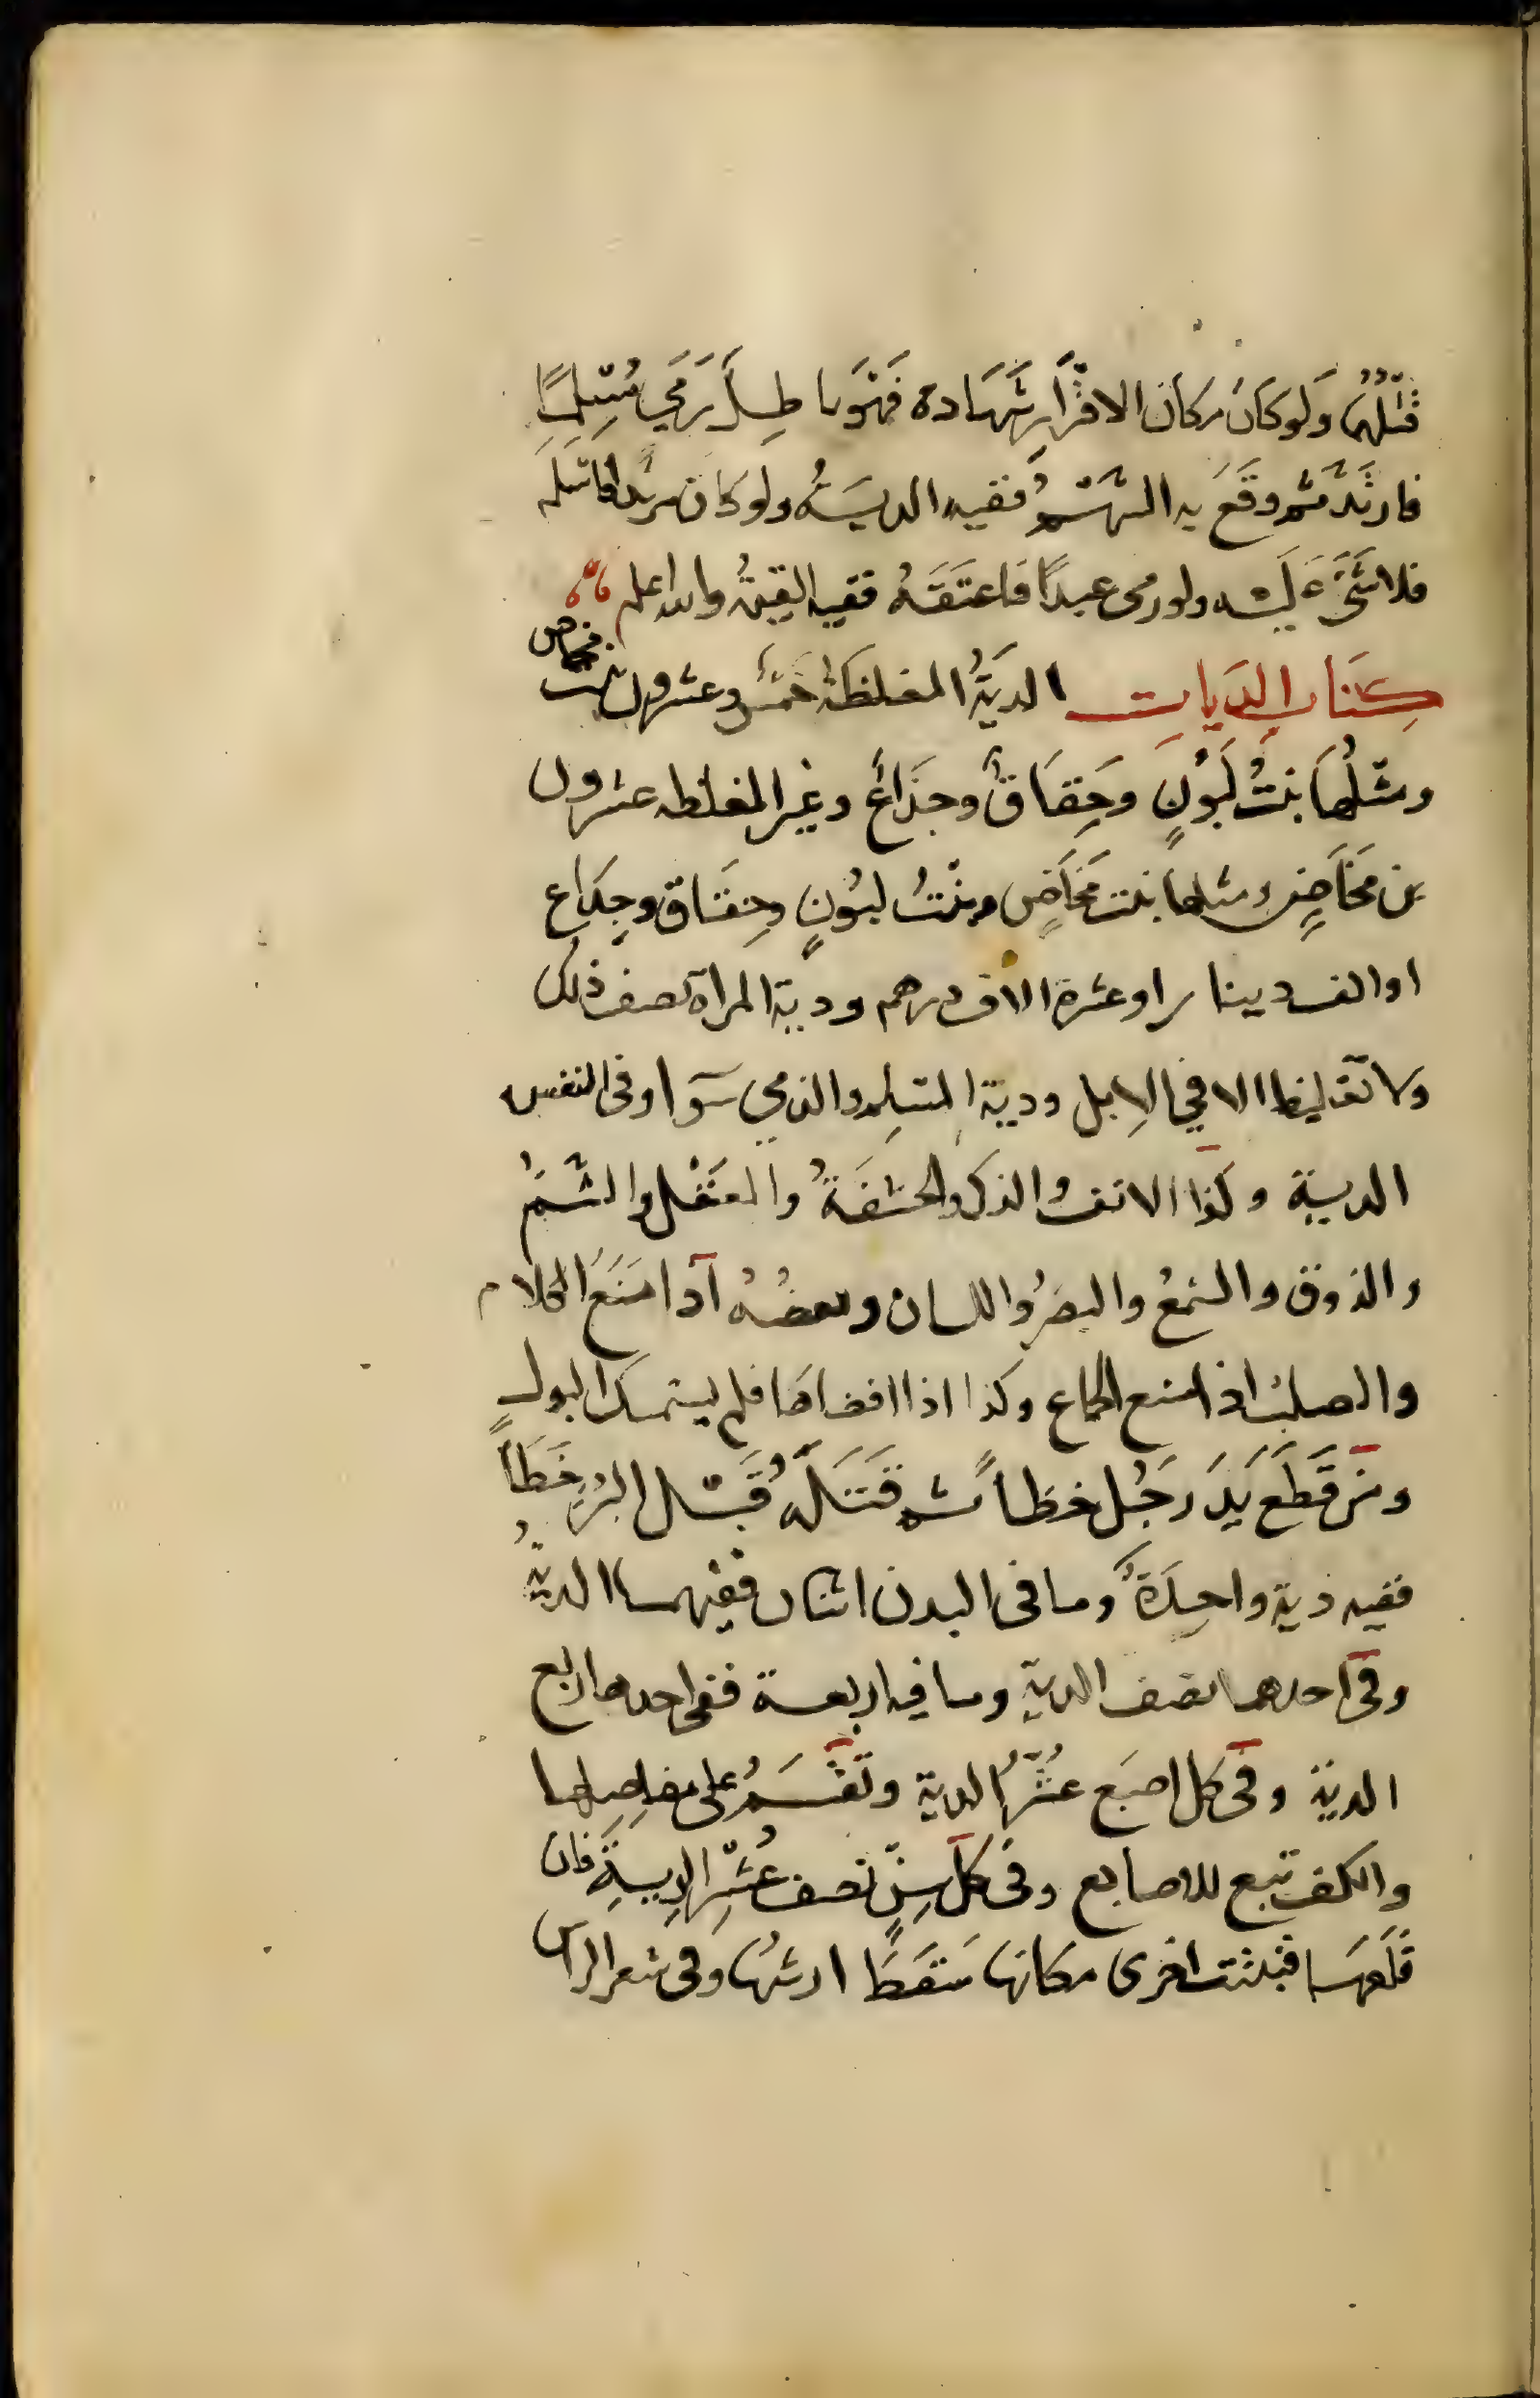 قَتْلُهُمَا وَلَو كَانَ مكان الاقْرَارِ شَهَادة فَهْوَ باطِل رَمَى مُسْلِمًا
فارتَدَّ ثم وقَعَ به السَّهْمُ ففيه الديَةُ ولو كان مرتدا فاسلم
فلا شَىْءَ عَلَيْه ولو رمى عبدًا فاعتَقَهُ ففيه القيمةُ والله اعلم
كتاب الديات الديَةُ المغلظة خمسٌ وعشرون بنت مخاض
ومثلُهَا بنتُ لَبُوْنٍ وَحِقَاقٌ وجذَاعٌ وغير المغلظه عشرون
بن مَخَاضٍ ومثلها بنت مَخَاضٍ وبنْتُ لبُونٍ وحِقَاق وجِذاع
او الف دينار او عشرة الاف درهم ودية المراة نصف ذلك
ولا تغليظ الا في الابل ودية المسلم والذمي سوآ وفى النفس
الدية وكذا الانف والذكر والحشفَةُ والعَقْل والشَّمُّ
والذوق والسَّمعُ والبصرُ واللسان وبعضُهُ اذا مَنَعَ الكلام
والصلبُ اذا منع الجماع وكذا اذا افضاها فلم يستمسك البول
ومَن قَطَعَ يَدَ رَجُلٍ خطاً ثم قَتَلَهُ قَبْل البُرْءِ خَطَاً
ففيه ديةٌ واحِدَةٌ وما فى البدن اثنان ففيهما الديةُ
وفى احدهما نصف الديةِ وما فيه اربعة ففى احدها ربع
الدية وفى كل اصبَع عُشْرُ الدية وتقْسَمُ على مفاصِلها
والكف تبع للاصابع وفى كل سِنٍّ نصف عُشْرِ الدِيَةِ فان
قَلَعَهَا فنبتت اخرى مكانها سَقَطَ ارشُهَا وفى شعر الراس